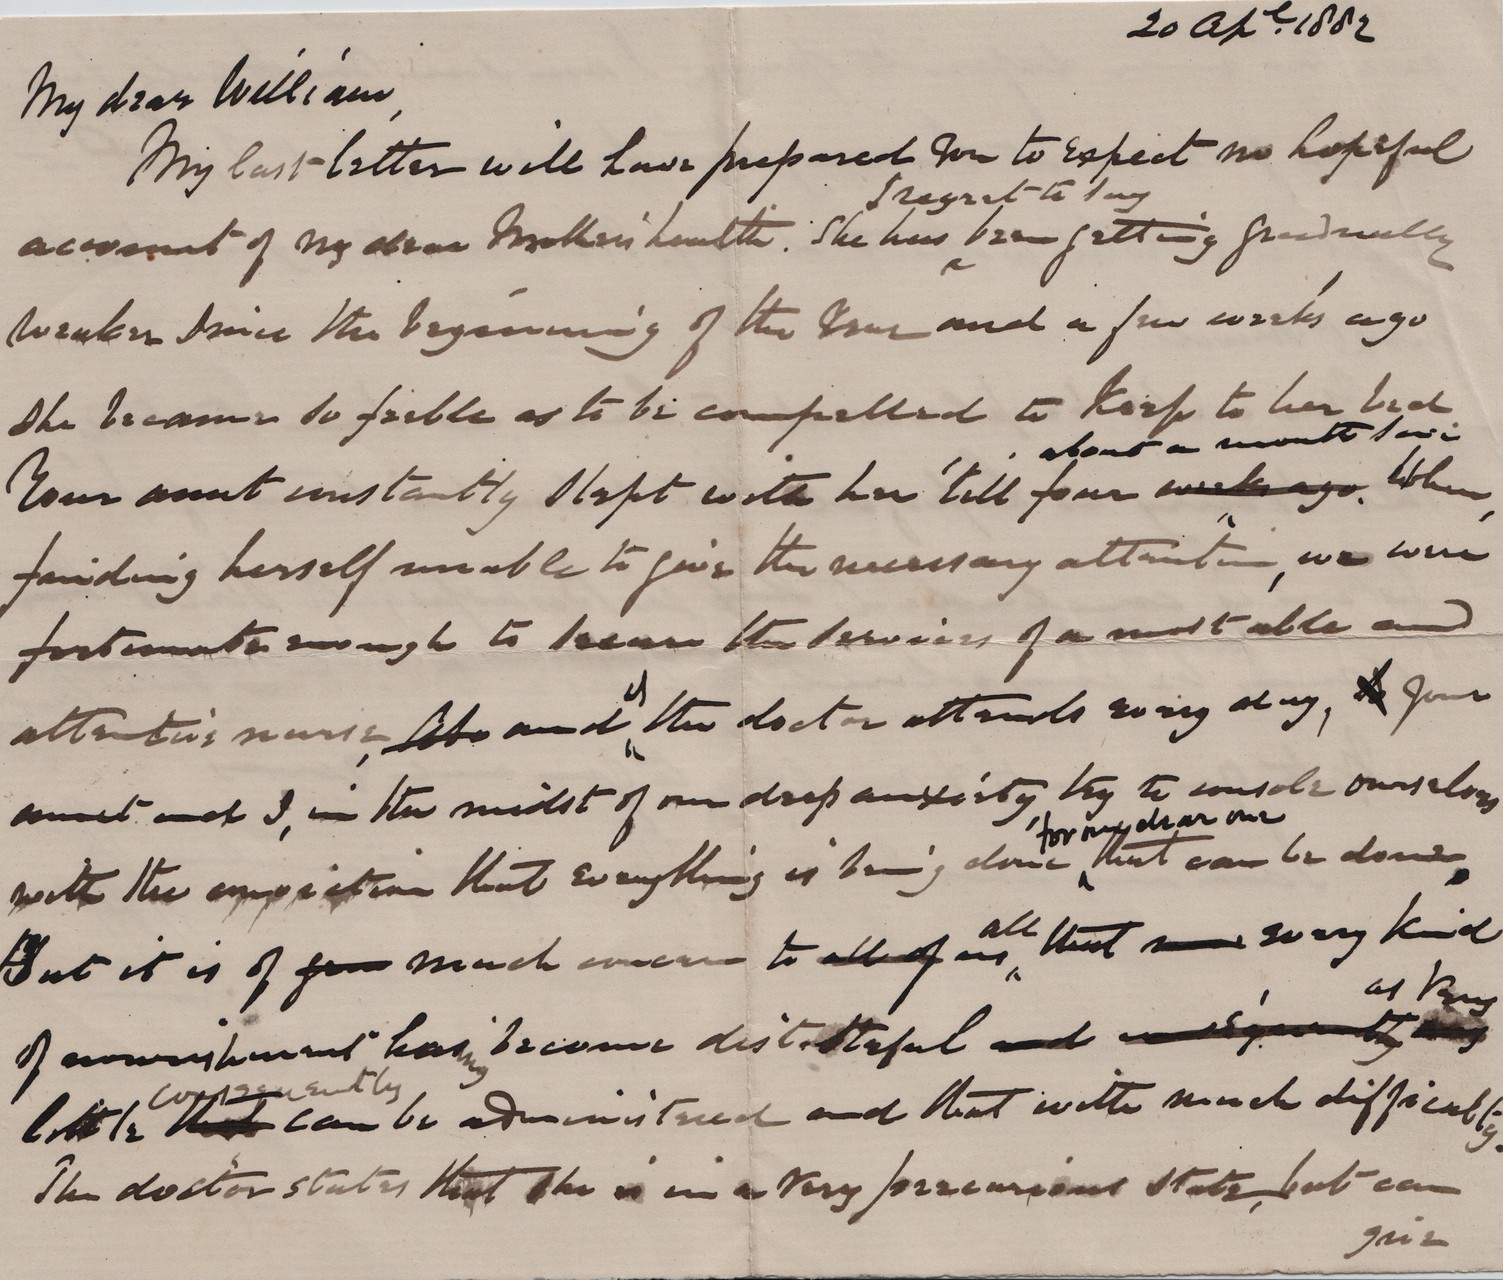 20 Apl. 1882
My dear William,
My last letter will have prepared you to expect no hopeful
I regret to say
account of my dear Mother's health. She has been getting gradually
weaker since the beginning of the Year and a few weeks ago
she became so feeble as to be compelled to keep to her bed
about a month since
Your aunt constantly slept with her till four weeks ago. When,
finding herself unable to give the necessary attention, we were
fortunate enough to secure the services of a most able and
attentive nurse, and the doctor attends every day, Your
aunt and I, in the midst of our deep anxiety, try to console ourselves
for my dear one
with the conviction that everything is being done that can be done,
all
But it is of much concern to all of us that every kind
as very
of nourishment having become distasteful and consequently
consequently
little that can be administered and that with much difficulty.
The doctor states that she is in a very precarious state, but can
give